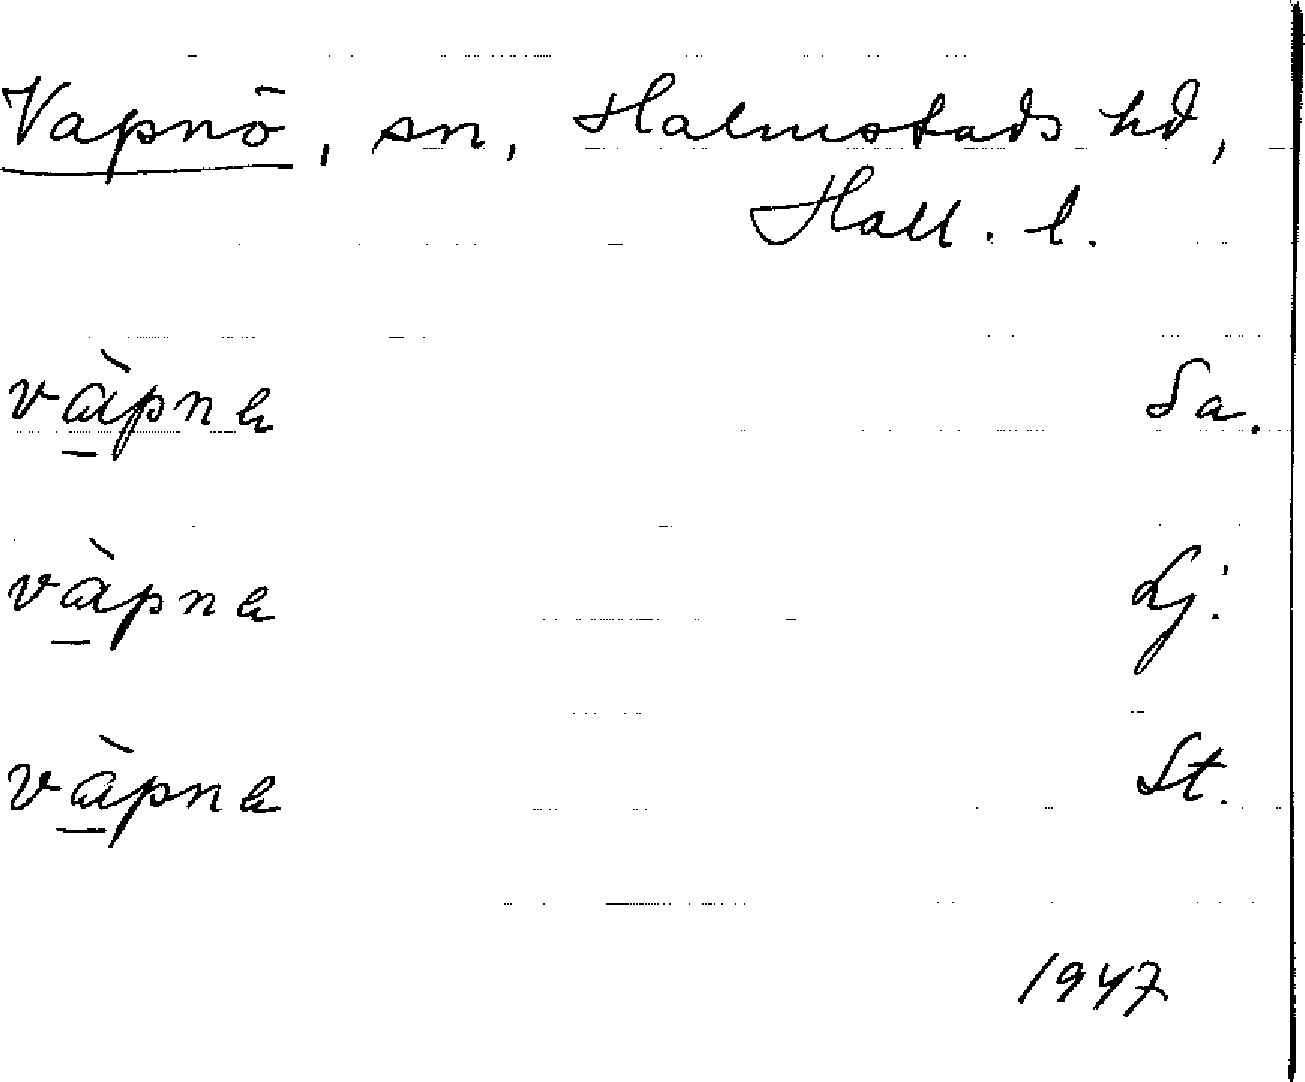 Vapnö, sn, Halmstads hd,
Hall. l.
vàpna Sa.
vàpna Lj.
vàpna St.
1947